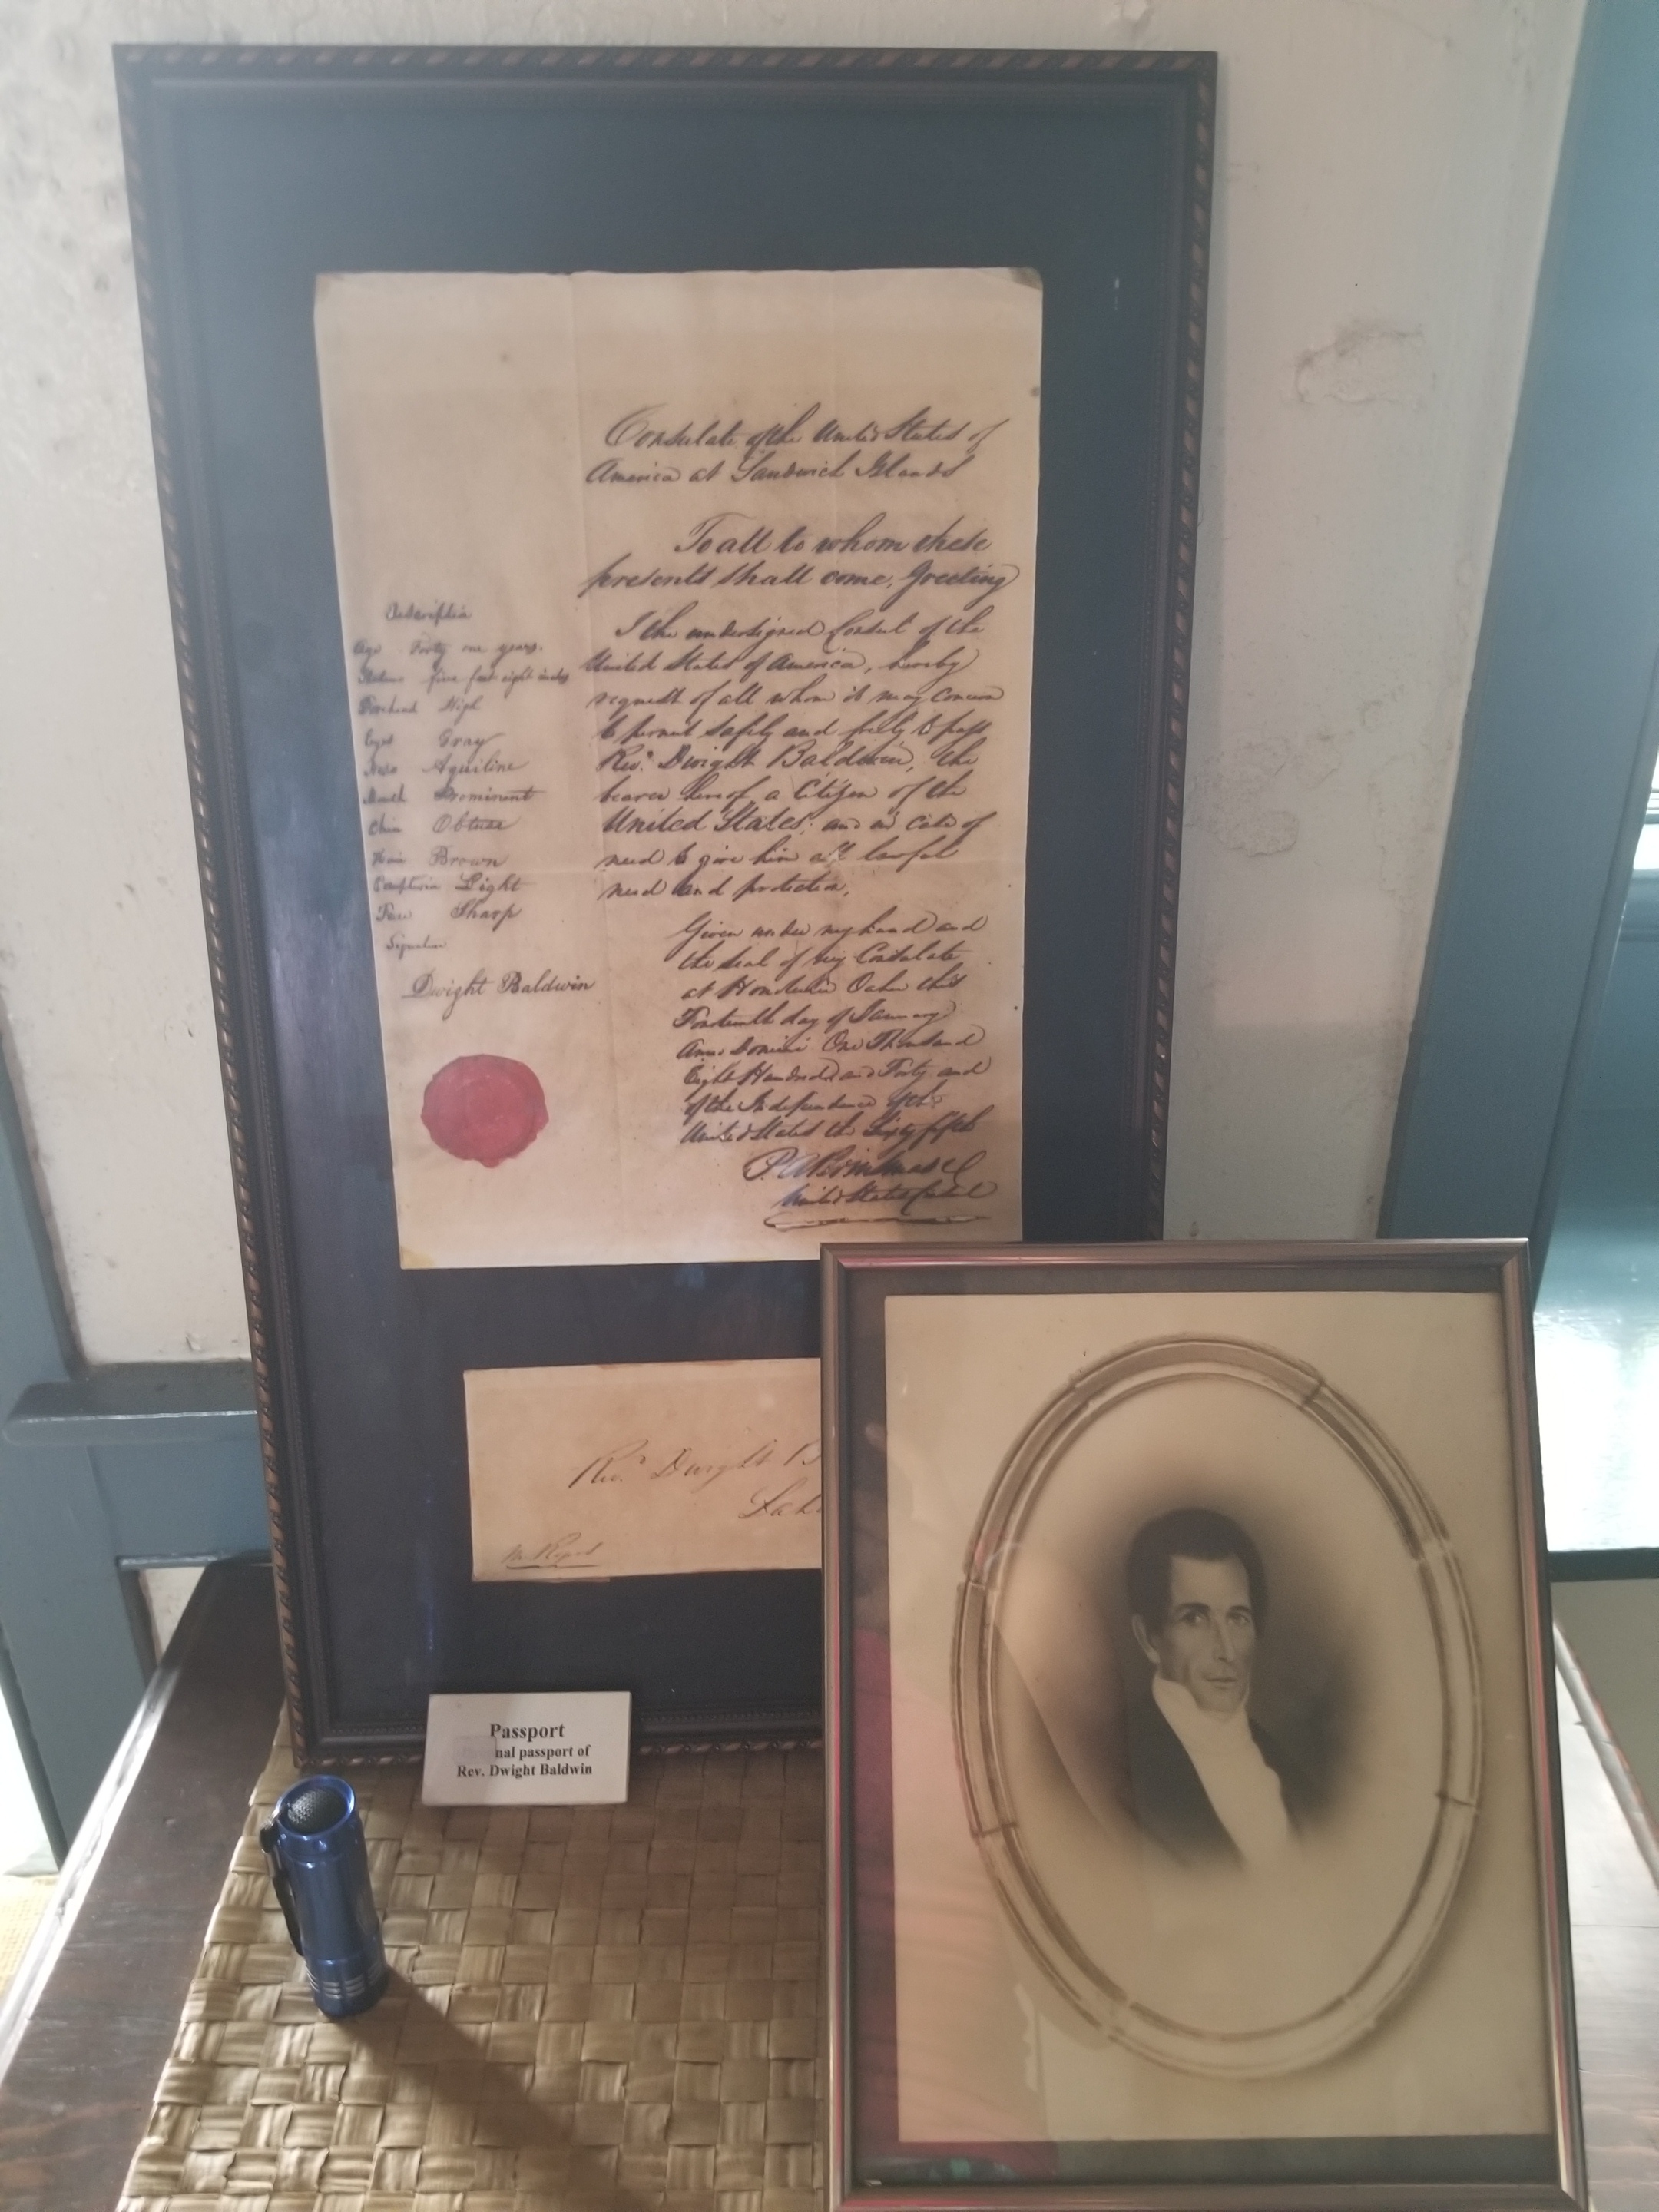 Consulate of the United States of
America at Sandwich Islands
To all to whom these
presents shall come, Greeting
Description
Age Forty one years.
Stature five feet eight inches
Forehead High
Eyes Gray
Nose Aquiline
Mouth Prominent
Chin Obtuse
Hair Brown
Light
Face Sharp
Signature
Dwight Baldwin
I the undersigned Consul of the
United States of America, hereby
request of all whom it may concern
to permit safely and freely to pass
Revd. Dwight Baldwin, the
bearer hereof a Citizen of the
United States; and in case of
need to give him all lawful
and protection.
Given under my hand and
the seal of my Consulate
at Honolulu Oahu this
day of January
Anno Domini One Thousand
Eight Hundred and Forty and
of the Independence of the
United States the Sixty fifth
P. A. Brinsmade
United States Consul
Revd. Dwight B
Lah
Passport
nal passport of
Rev. Dwight Baldwin